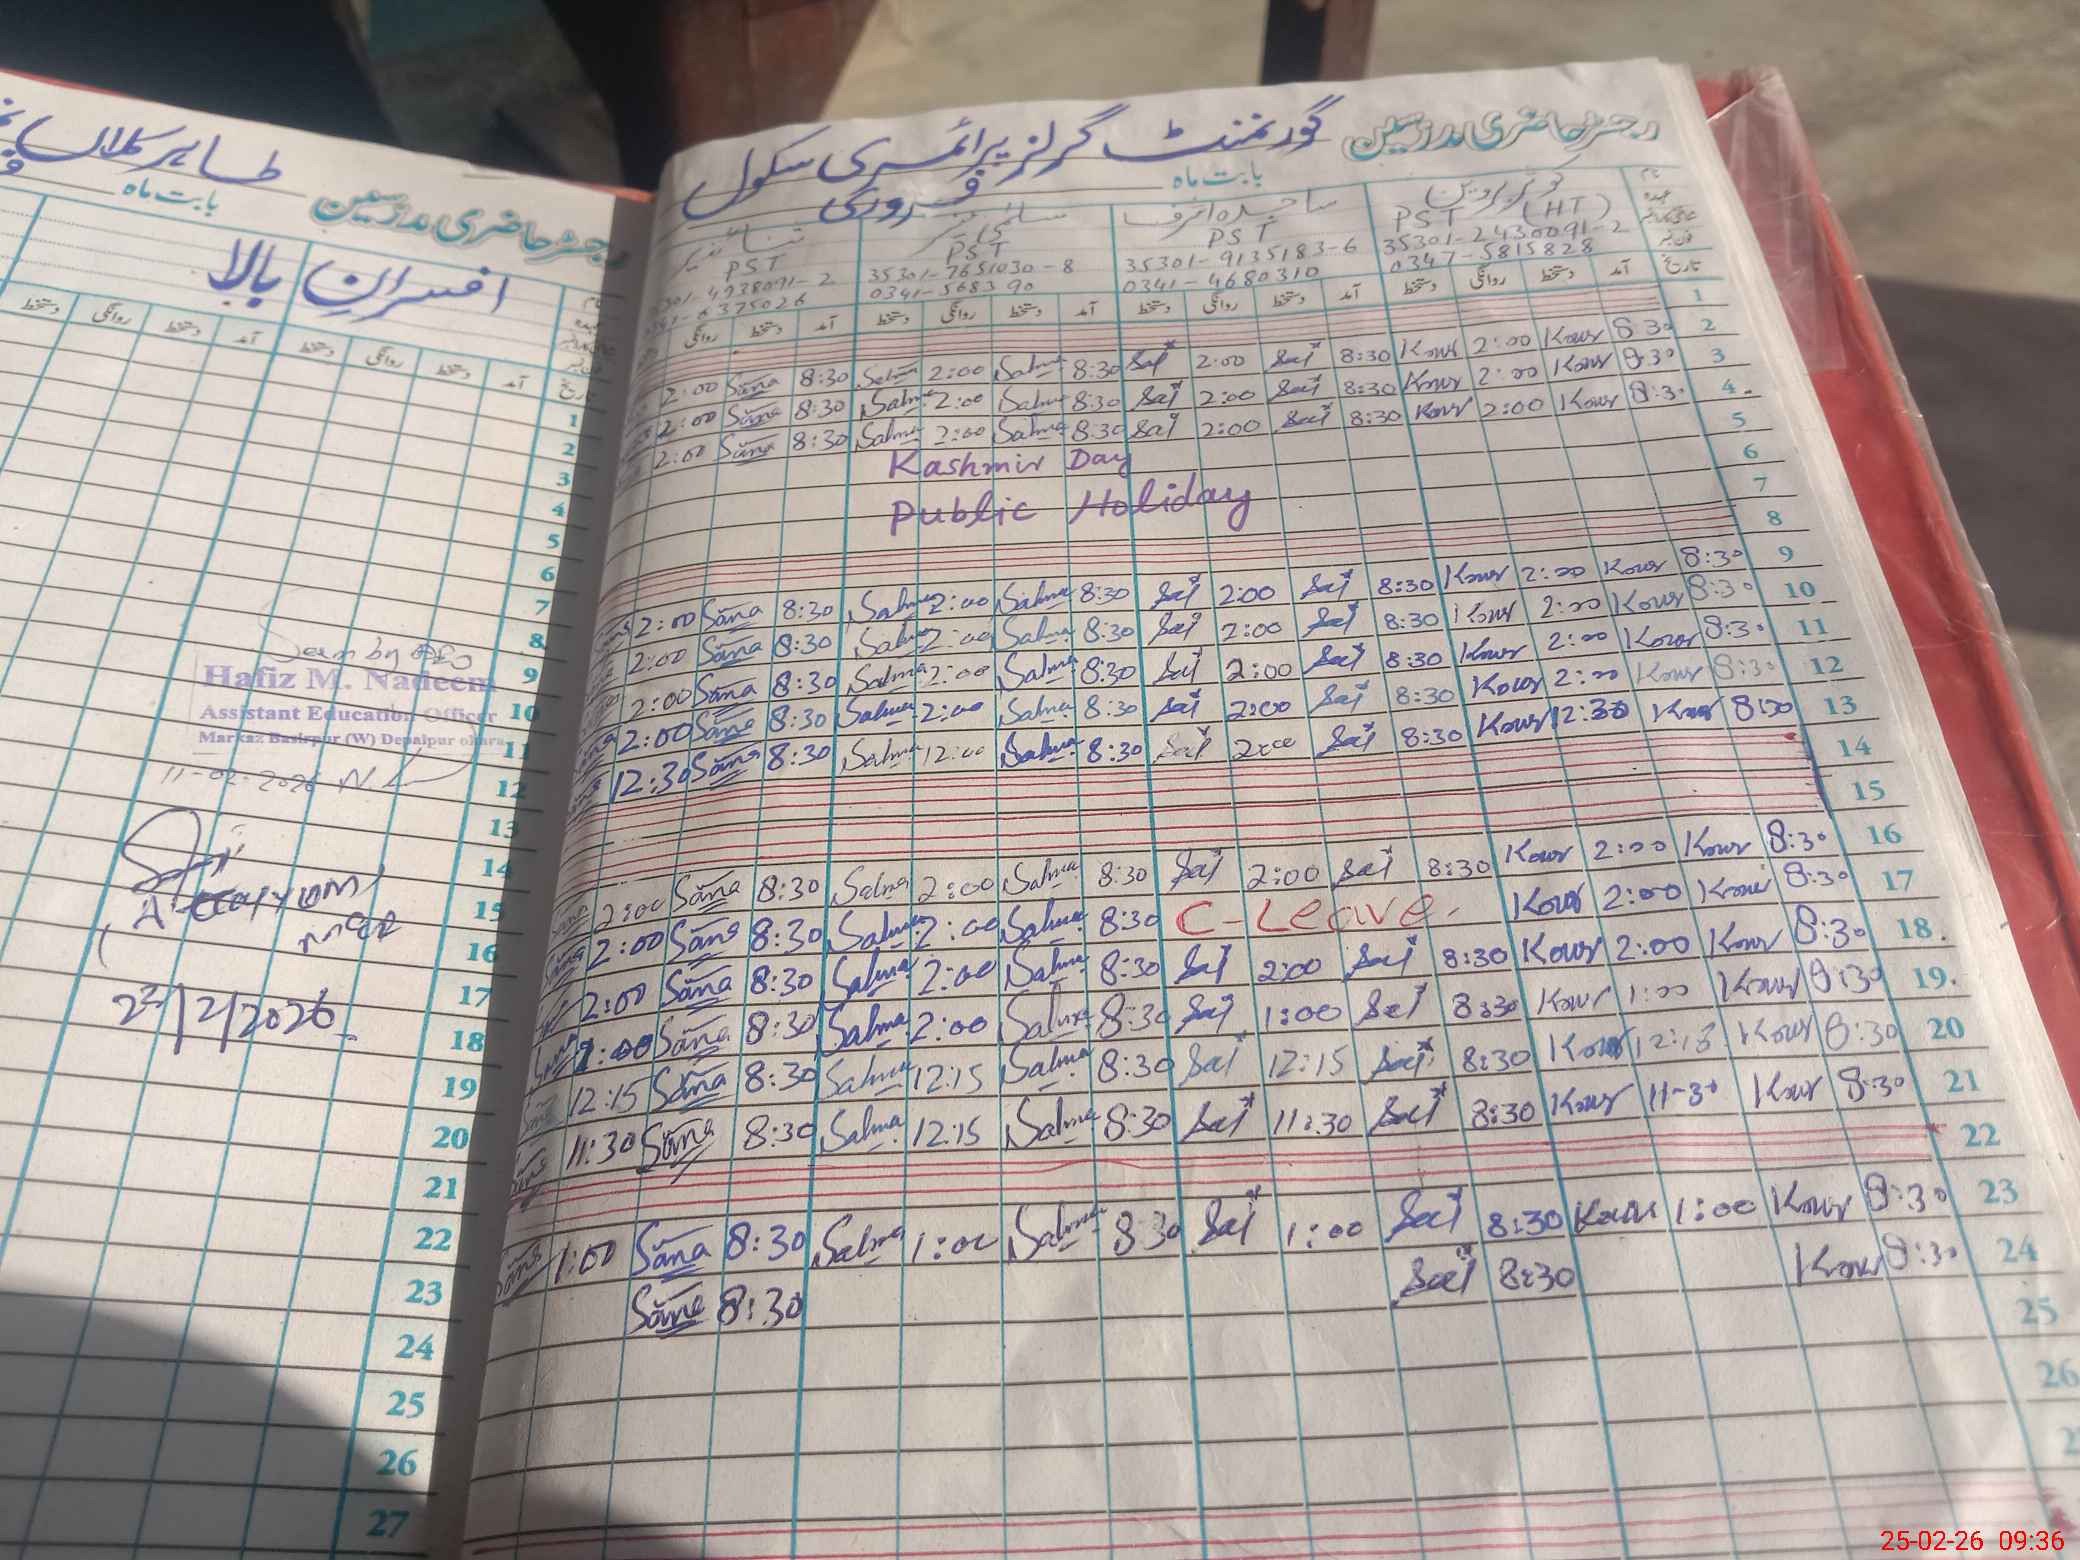 رجسٹر حاضری مدرسین گورنمنٹ گرلز پرائمری سکول
بابت ماہ فروری
نام
عہدہ
کوثر پروین ساجدہ اشرف سلمیٰ
PST (HT) PST PST PST
35301-2430091-2 35301-9135183-6 35301-7651030-8 35301-4938091-2
0347-5815828 0341-4680310 0341-568390 6375026
تاریخ آمد دستخط روانگی دستخط آمد دستخط روانگی دستخط آمد دستخط روانگی دستخط آمد دستخط روانگی
1
2:00 Sana 8:30 Salma 2:00 Salma 8:30 Saj 2:00 Saj 8:30 Kour 2:00 Kour 8:30 2
2:00 Sana 8:30 Salma 2:00 Salma 8:30 Saj 2:00 Saj 8:30 Kour 2:00 Kour 8:30 3
2:00 Sana 8:30 Salma 2:00 Salma 8:30 Saj 2:00 Saj 8:30 Kour 2:00 Kour 8:30 4
Kashmir Day 5
6
Public Holiday 7
8
Sana 2:00 Sana 8:30 Salma 2:00 Salma 8:30 Saj 2:00 Saj 8:30 Kour 2:00 Kour 8:30 9
2:00 Sana 8:30 Salma 2:00 Salma 8:30 Saj 2:00 Saj 8:30 Kour 2:00 Kour 8:30 10
2:00 Sana 8:30 Salma 2:00 Salma 8:30 Saj 2:00 Saj 8:30 Kour 2:00 Kour 8:30 11
Sana 2:00 Sana 8:30 Salma 2:00 Salma 8:30 Saj 2:00 Saj 8:30 Kour 2:00 Kour 8:30 12
Sana 12:30 Sana 8:30 Salma 12:00 Salma 8:30 Saj 2:00 Saj 8:30 Kour 12:30 Kour 8:30 13
14
15
Sana 2:00 Sana 8:30 Salma 2:00 Salma 8:30 Saj 2:00 Saj 8:30 Kour 2:00 Kour 8:30 16
Sana 2:00 Sana 8:30 Salma 2:00 Salma 8:30 C-Leave. Kour 2:00 Kour 8:30 17
2:00 Sana 8:30 Salma 2:00 Salma 8:30 Saj 2:00 Saj 8:30 Kour 2:00 Kour 8:30 18
Sana Sana 8:30 Salma 2:00 Salma 8:30 Saj 1:00 Saj 8:30 Kour 1:00 Kour 8:30 19
Sana 12:15 Sana 8:30 Salma 12:15 Salma 8:30 Saj 12:15 Saj 8:30 Kour 12:15 Kour 8:30 20
Sana 11:30 Sana 8:30 Salma 12:15 Salma 8:30 Saj 11:30 Saj 8:30 Kour 11-30 Kour 8:30 21
22
Sana 1:00 Sana 8:30 Salma 1:00 Salma 8:30 Saj 1:00 Saj 8:30 Kour 1:00 Kour 8:30 23
Sana 8:30 Saj 8:30 Kour 8:30 24
25
26
رجسٹر حاضری مدرسین طاہر کلاں
بابت ماہ
نام
افسرانِ بالا
تاریخ آمد دستخط روانگی دستخط آمد دستخط روانگی دستخط
1
2
3
4
5
6
7
8
Seen by AEO
9
Hafiz M. Nadeem
10
Assistant Education Officer
11
Markaz Basirpur (W) Depalpur okara
12
11-02-2026
13
14
15
16
17
23/2/2026
18
19
20
21
22
23
24
25
26
27
25-02-26 09:36